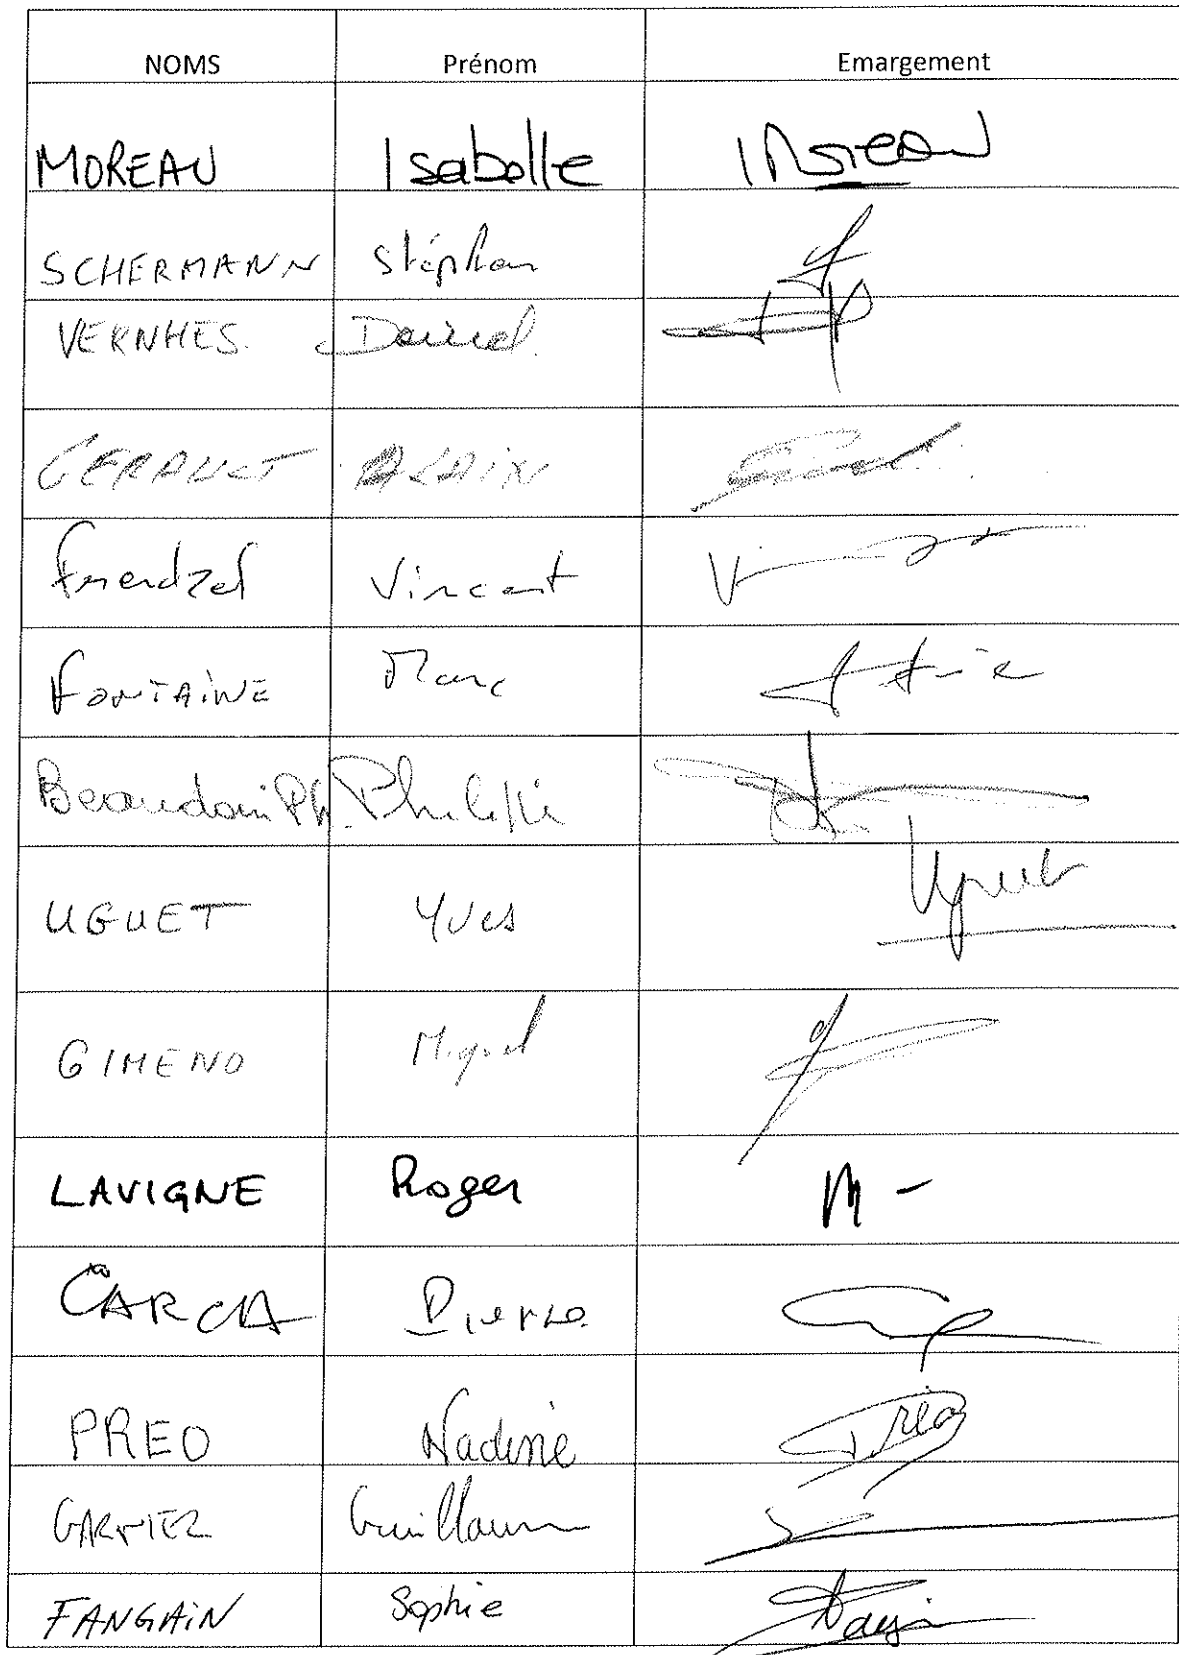 NOMS Prénom Emargement
MOREAU Isabelle Moreau
SCHERMANN Stéphan
VERNHES. Daniel.
GERAULT ALAIN
Vincent
FONTAINE Marc
Beaudoin Ph. Philippe
UGUET Yves Uguet
GIMENO Miguel
LAVIGNE Roger
GARCIA Pierre
PREO Nadine Préo
GARNIER Guillaume
FANGAIN Sophie